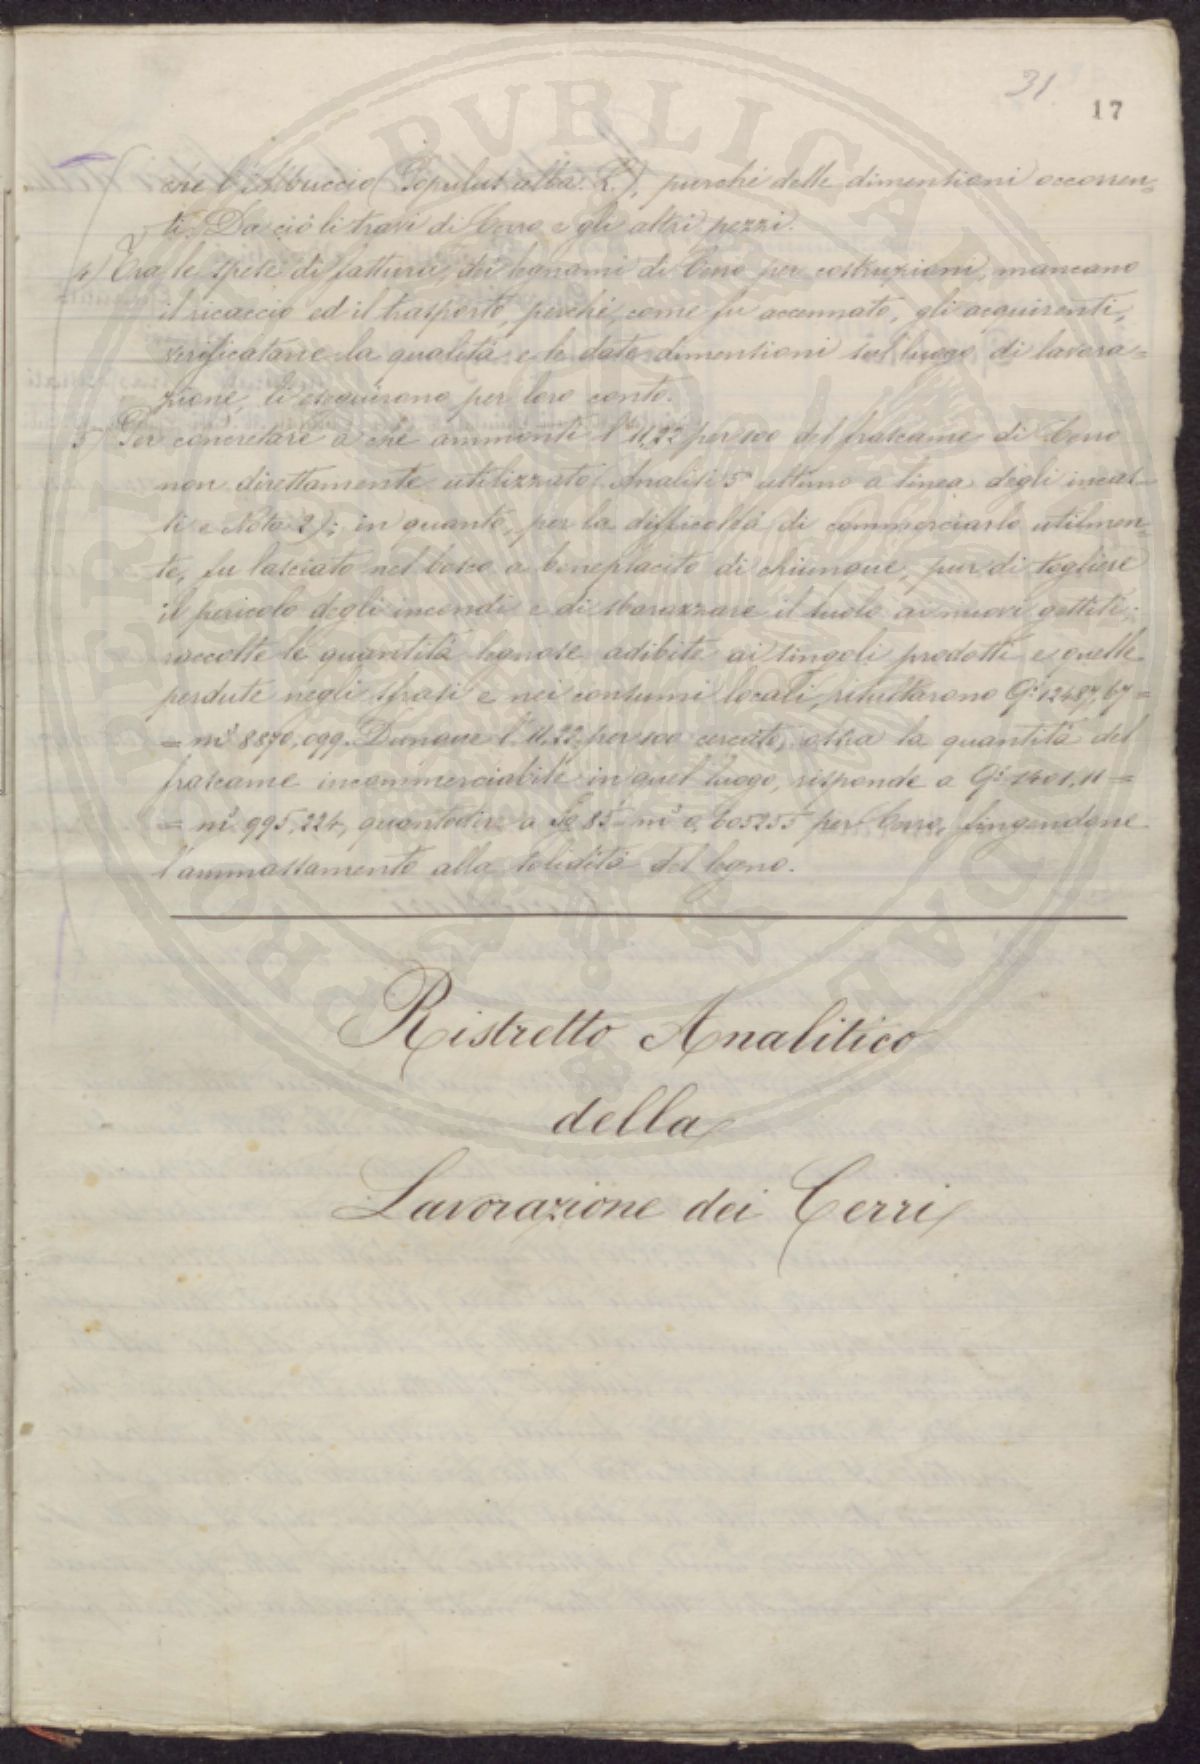 31
17
che l'Albuccio (Populus alba. L.), purchè delle dimensioni occorren=
ti. Da ciò li travi di Cerro e gli altri pezzi.
4) Tra le spese di fattura dei legnami di Cerro per costruzioni, mancano
il ricaccio ed il trasporto, perchè, come fu accennato, gli acquirenti,
verificatane la qualità e le date dimensioni sul luogo di lavora=
zione, li eseguirono per loro conto.
5) Per concretare a che ammonti l'11,22 per 100 del frascame di Cerro
non direttamente utilizzato (Analisi 5ª ultimo a linea degli incas=
si e Nota 2); in quanto, per la difficoltà di commerciarlo utilmen=
te, fu lasciato nel bosco a beneplacito di chiunque, pur di togliere
il pericolo degli incendi e di sbarazzare il suolo ai nuovi gettiti;
raccolte le quantità legnose adibite ai singoli prodotti e quelle
perdute negli sfrasi e nei consumi locali, risultarono Qⁱ 12487,67=
=m³ 8870,099. Dunque l'11,22 per 100 cercato, ossia la quantità del
frascame incommerciabile in quel luogo, risponde a Qⁱ 1401,11=
=m³ 995,224, quantodire a 85 = m³ 0,605255 per Cerro, fingendone
l'ammassamento alla solidità del legno.
Ristretto Analitico
della
Lavorazione dei Cerri